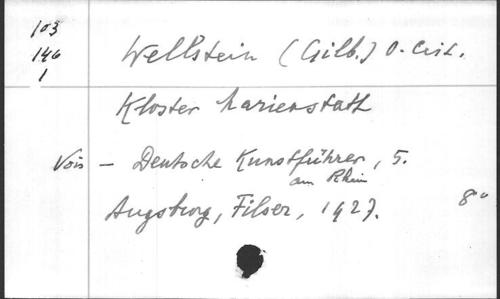 103
146
1
Wellstein (Gilb.) O. Cist.
Kloster Marienstatt
Vois – Deutsche Kunstführer, 5.
am Rhein
Augsburg, Filser, 1927.
8°